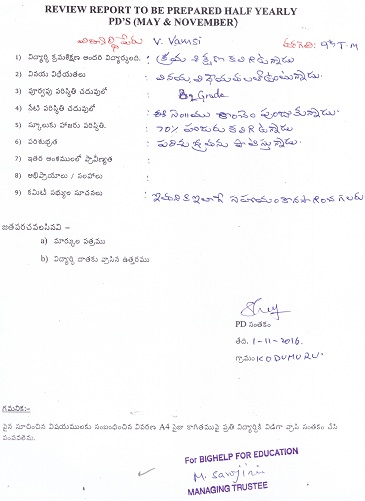 REVIEW REPORT TO BE PREPARED HALF YEARLY
PD'S (MAY & NOVEMBER)
V. Vamsi తరగతి: 9th T.M
1) విద్యార్థి క్రమశిక్షణ అందరి విద్యార్థులది. : క్రమ శిక్షణ కలిగి ఉన్నాడు
2) వినయ విధేయతలు : వినయ విధేయతలతో ఉంటున్నాడు.
3) పూర్వపు పరిస్థితి చదువులో : B2 Grade
4) నేటి పరిస్థితి చదువులో :
5) స్కూలుకు హాజరు పరిస్థితి. : 90% హాజరు కలిగి ఉన్నాడు
6) పరిశుభ్రత :
7) ఇతర అంశములలో ప్రావీణ్యత :
8) అభిప్రాయాలు / సలహాలు :
9) కమిటీ సభ్యుల సూచనలు :
జతపరచవలసినవి –
a) మార్కుల పత్రము
b) విద్యార్థి దాతకు వ్రాసిన ఉత్తరము
PD సంతకం
తేది. 1-11-2016.
గ్రామం KODUMURU.
గమనిక:-
పైన సూచించిన విషయములకు సంబంధించిన వివరణ A4 సైజు కాగితముపై ప్రతి విద్యార్థికి విడిగా వ్రాసి సంతకం చేసి
పంపవలెను.
For BIGHELP FOR EDUCATION
M. Sarojini
MANAGING TRUSTEE